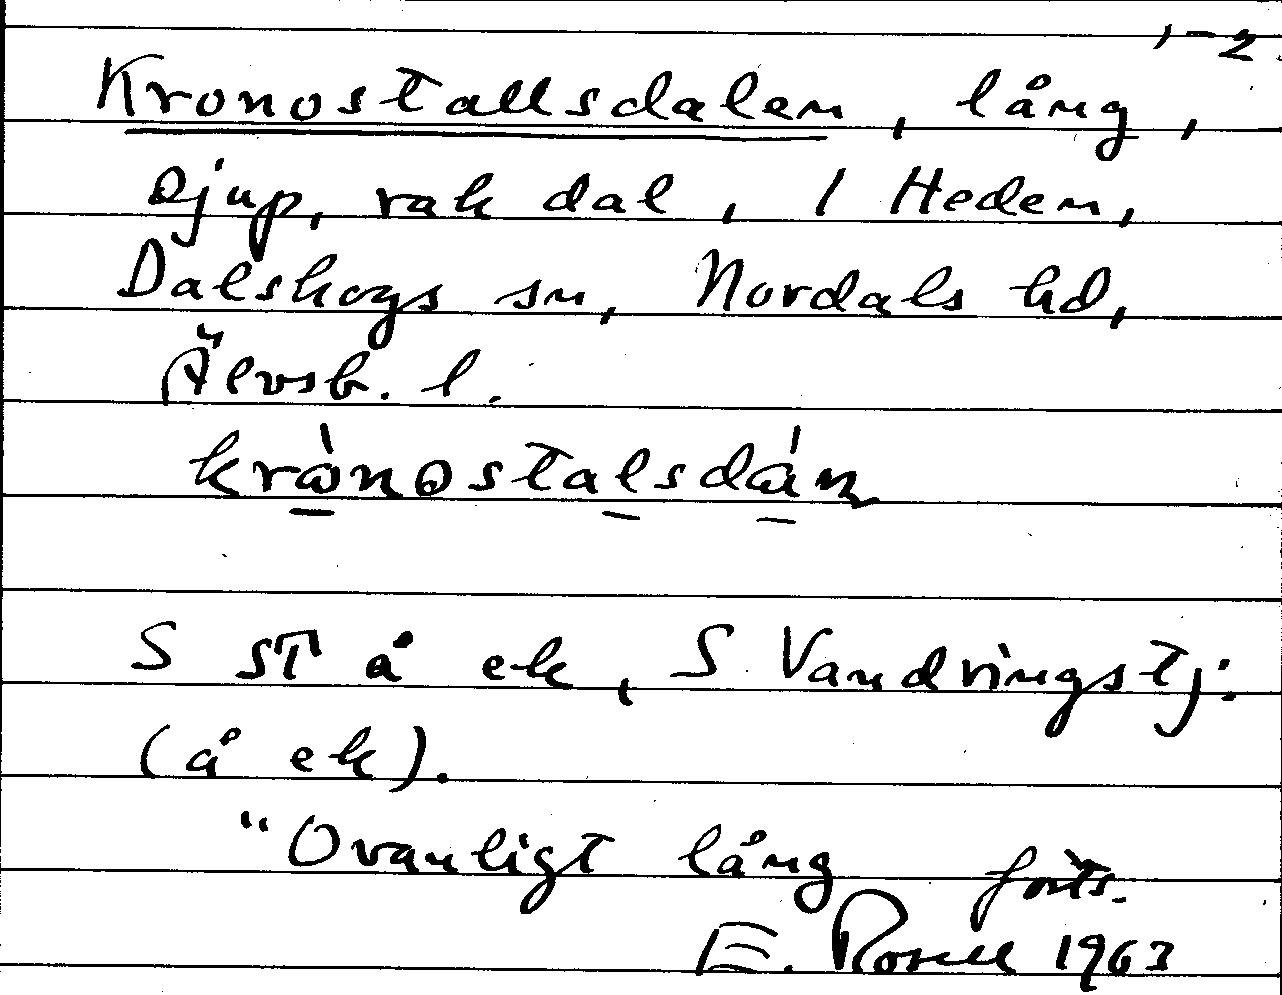 1-2
Kronostallsdalen, lång,
Djup, rak dal, 1 Heden,
Dalskogs sn, Nordals hd,
Älvsb. l.
krånostalsdán
S ST å ek, S Vandringstj.
(å ek).
"Ovanligt lång forts.
E. Rosell 1963